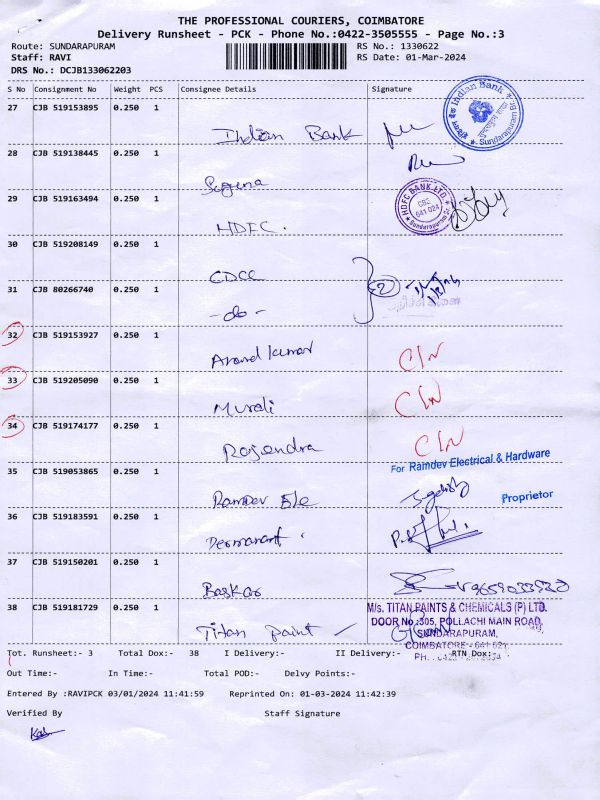 THE PROFESSIONAL COURIERS, COIMBATORE
Delivery Runsheet - PCK - Phone No.:0422-3505555 - Page No.:3
Route: SUNDARAPURAM RS No.: 1330622
Staff: RAVI RS Date: 01-Mar-2024
DRS No.: DCJB133062203
S No Consignment No Weight PCS Consignee Details Signature
27 CJB 519153895 0.250 1
Indian Bank
Indian Bank
Sundarapuram Br.
28 CJB 519138445 0.250 1
Suguna
29 CJB 519163494 0.250 1
HDFC.
HDFC BANK LTD.
641 024
Sundarapuram
30 CJB 519208149 0.250 1
CDCC
31 CJB 80266740 0.250 1
-do-
2
32 CJB 519153927 0.250 1
Anand kumar C/N
33 CJB 519205090 0.250 1
Murali C/N
34 CJB 519174177 0.250 1
Rajendra C/N
For Ramdev Electrical & Hardware
35 CJB 519053865 0.250 1
Ramdev Ele
Proprietor
36 CJB 519183591 0.250 1
Permanant
37 CJB 519150201 0.250 1
Baskar
38 CJB 519181729 0.250 1
Titan paint
M/s. TITAN PAINTS & CHEMICALS (P) LTD.
DOOR No:305, POLLACHI MAIN ROAD,
SUNDARAPURAM,
COIMBATORE - 641 021
Tot. Runsheet:- 3 Total Dox:- 38 I Delivery:- II Delivery:- RTN Dox:-
Out Time:- In Time:- Total POD:- Delvy Points:-
Entered By :RAVIPCK 03/01/2024 11:41:59 Reprinted On: 01-03-2024 11:42:39
Verified By Staff Signature